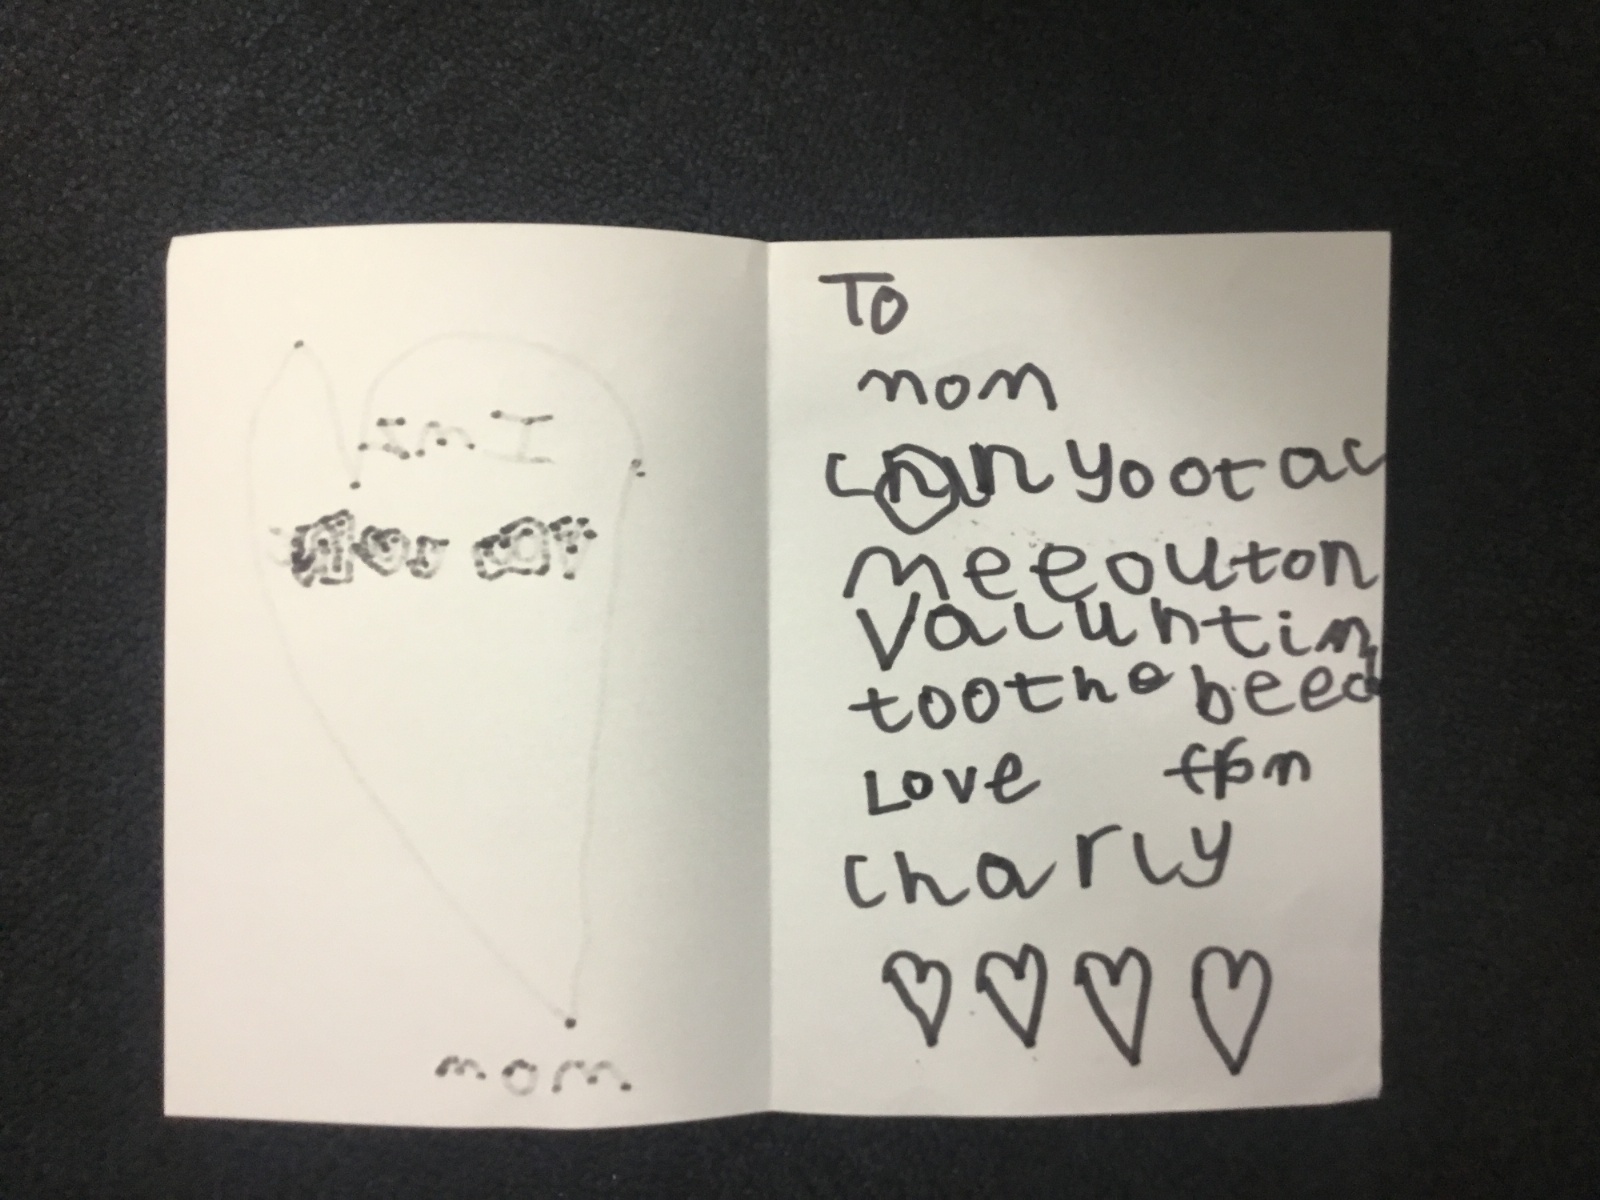 mom
To
mom
can yoo tac
mee out on
valuntin
too the beec
Love
Charly